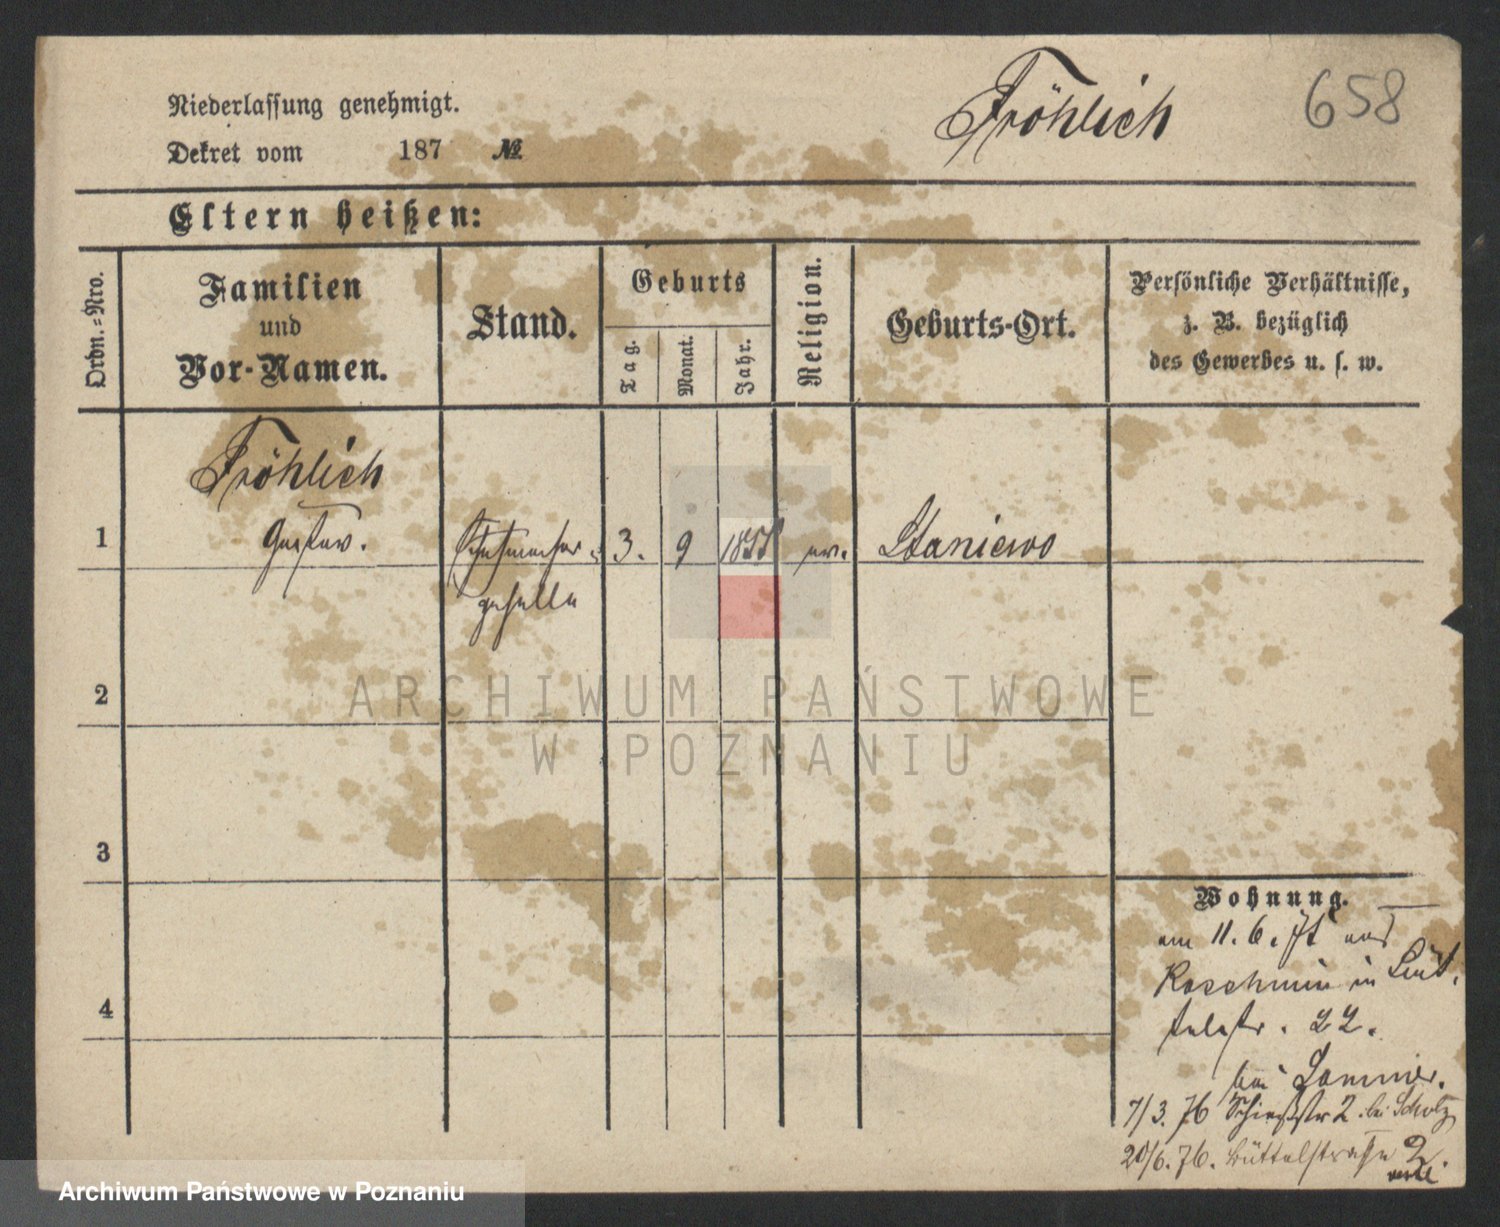 Fröhlich
658
Niederlassung genehmigt.
Dekret vom 187 №
Eltern heißen:
Ordn.=Nro.
Familien
und
Vor-Namen.
Stand.
Geburts
Tag.
Monat.
Jahr.
Religion.
Geburts-Ort.
Persönliche Verhältnisse,
z. B. bezüglich
des Gewerbes u. s. w.
Fröhlich
1 Gustav. Schuhmacher 3. 9 ev. Staniewo
geselle
2
ARCHIWUM PAŃSTWOWE
W POZNANIU
3
Wohnung.
am 11. 6. aus
Koschmin in Büt
telstr. 22.
4
bei Sommer.
7/3. 76 Schießstr 2. bei Scholz
20/6. 76. Büttelstraße 2.
Archiwum Państwowe w Poznaniu